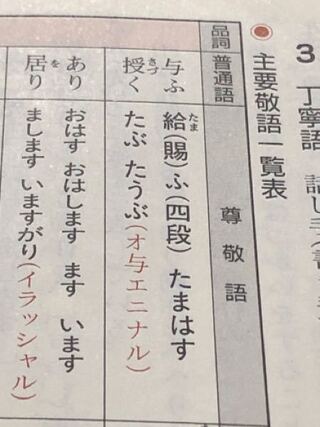 3 丁寧語 話し手(書
主要敬語一覧表
品詞 普通語 尊敬語
与ふ 給(賜)ふ(四段) たまはす
たま
授く たぶ たうぶ(オ与エニナル)
さづ
あり おはす おはします ます います
居り まします いますがり(イラッシャル)
を